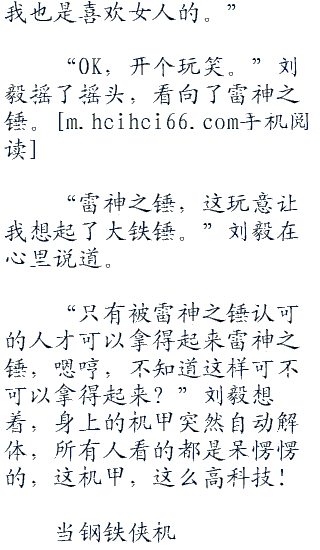 我也是喜欢女人的。”
“OK，开个玩笑。”刘
毅摇了摇头，看向了雷神之
锤。[m.hcihci66.com手机阅
读]
“雷神之锤，这玩意让
我想起了大铁锤。”刘毅在
心里说道。
“只有被雷神之锤认可
的人才可以拿得起来雷神之
锤，嗯哼，不知道这样可不
可以拿得起来？”刘毅想
着，身上的机甲突然自动解
体，所有人看的都是呆愣愣
的，这机甲，这么高科技！
当钢铁侠机